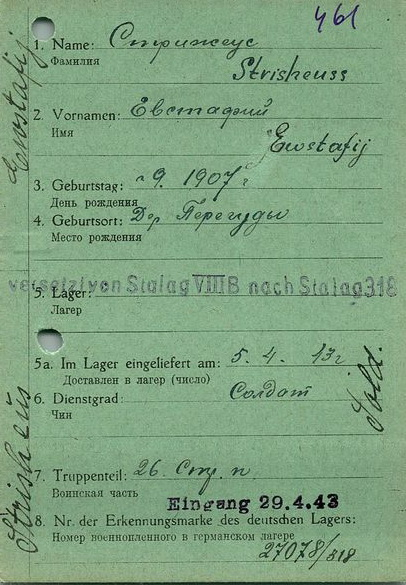 461
1. Name: Стрижеус
Фамилия
Strisheuss
2. Vornamen: Евстафий
Имя
Ewstafij
3. Geburtstag: 9. 1907 г
День рождения
4. Geburtsort: Дер Перегуды
Место рождения
versetzt von Stalag VIII B nach Stalag 318
5. Lager:
Лагерь
5a. Im Lager eingeliefert am: 5. 4. 43г
Доставлен в лагерь (число)
6. Dienstgrad: Солдат
Чин
7. Truppenteil: 26. Стр. п.
Воинская часть
Eingang 29.4.43
8. Nr. der Erkennungsmarke des deutschen Lagers:
Номер военнопленного в германском лагере
27078/318
Ewstafij
Strisheus
Sold.